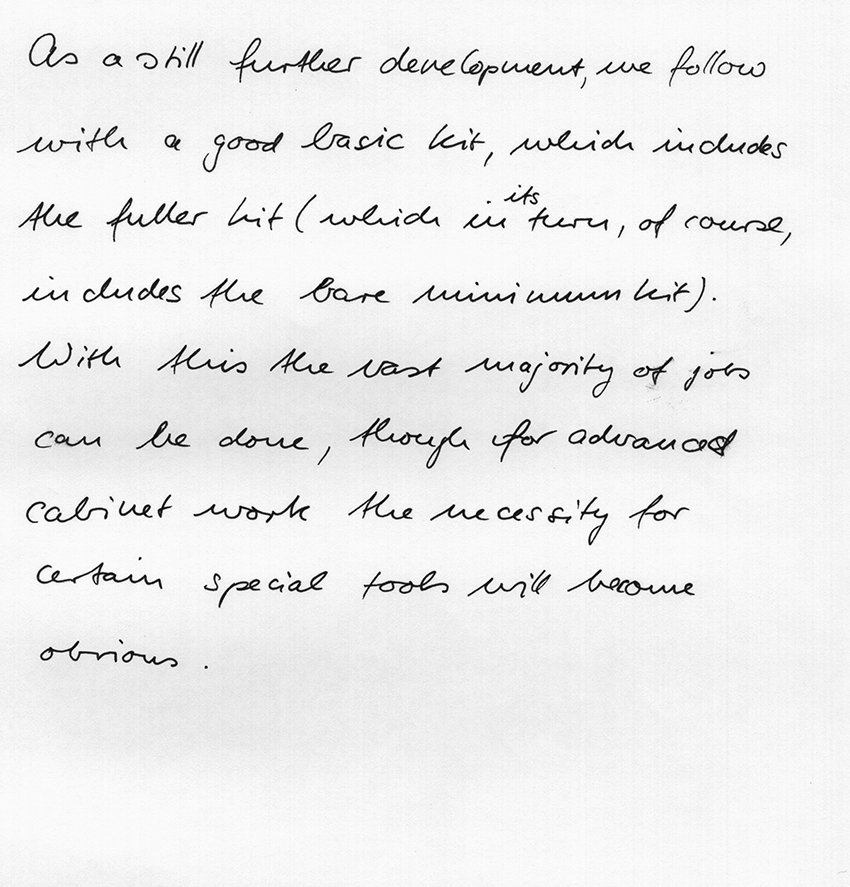 As a still further development, we follow
with a good basic kit, which includes
the fuller kit (which in its turn, of course,
includes the bare minimum kit).
With this the vast majority of jobs
can be done, though for advanced
cabinet work the necessity for
certain special tools will become
obvious.